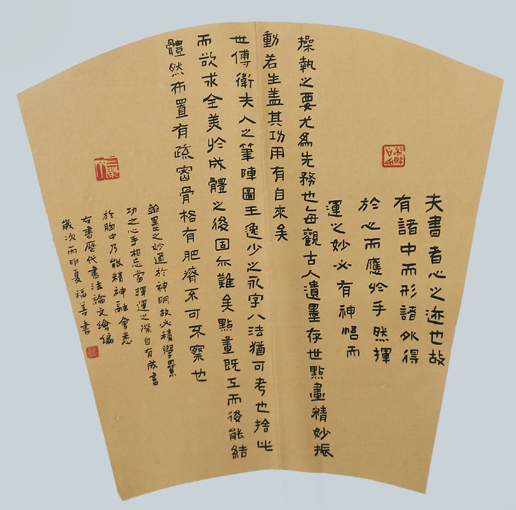 夫書者心之迹也故
有諸中而形諸外得
於心而應於手然揮
運之妙必有神悟而
操執之要尤為先務也每觀古人遺墨存世點畫精妙振
動若生盖其功用有自來矣
世傳衛夫人之筆陣圖王逸少之永字八法猶可考也捨此
而欲求全美於成體之後固亦難矣點畫既工而後能結
體然布置有疏密骨格有肥瘠不可不察也
翰墨之妙通於神明故必積學累
功之心手相忘當揮運之際自有成書
於胸中乃能精神融會悉
右書歷代書法論文編
歲次丙申夏福書